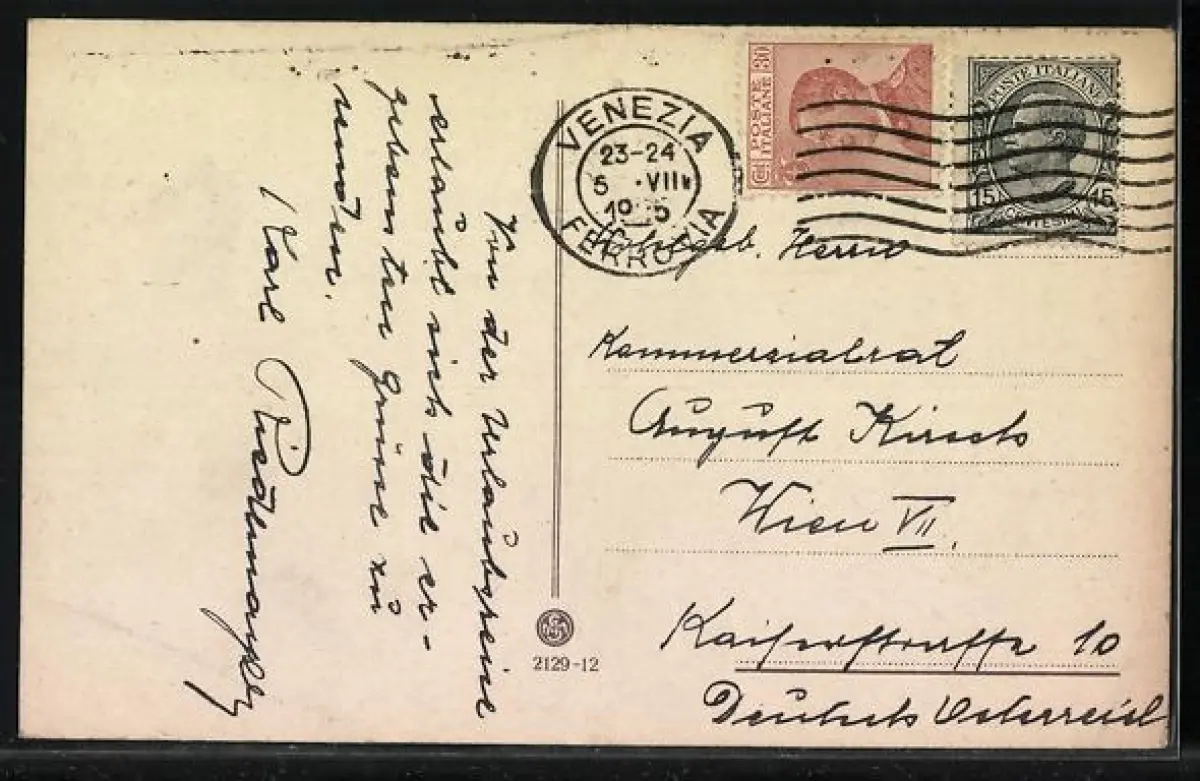 Von der Urlaubsreise
erlaubt sich die er-
gebensten Grüße zu
senden.
Karl
POSTE
ITALIANE
Ct. 30
POSTE ITALIANE
15 15
VENEZIA
23-24
VII
FERROVIA
Wohlgeb. Herrn
Kommerzialrat
August Kirsch
Wien VII.
Kaiserstrasse 10
Deutsch Österreich
2129-12